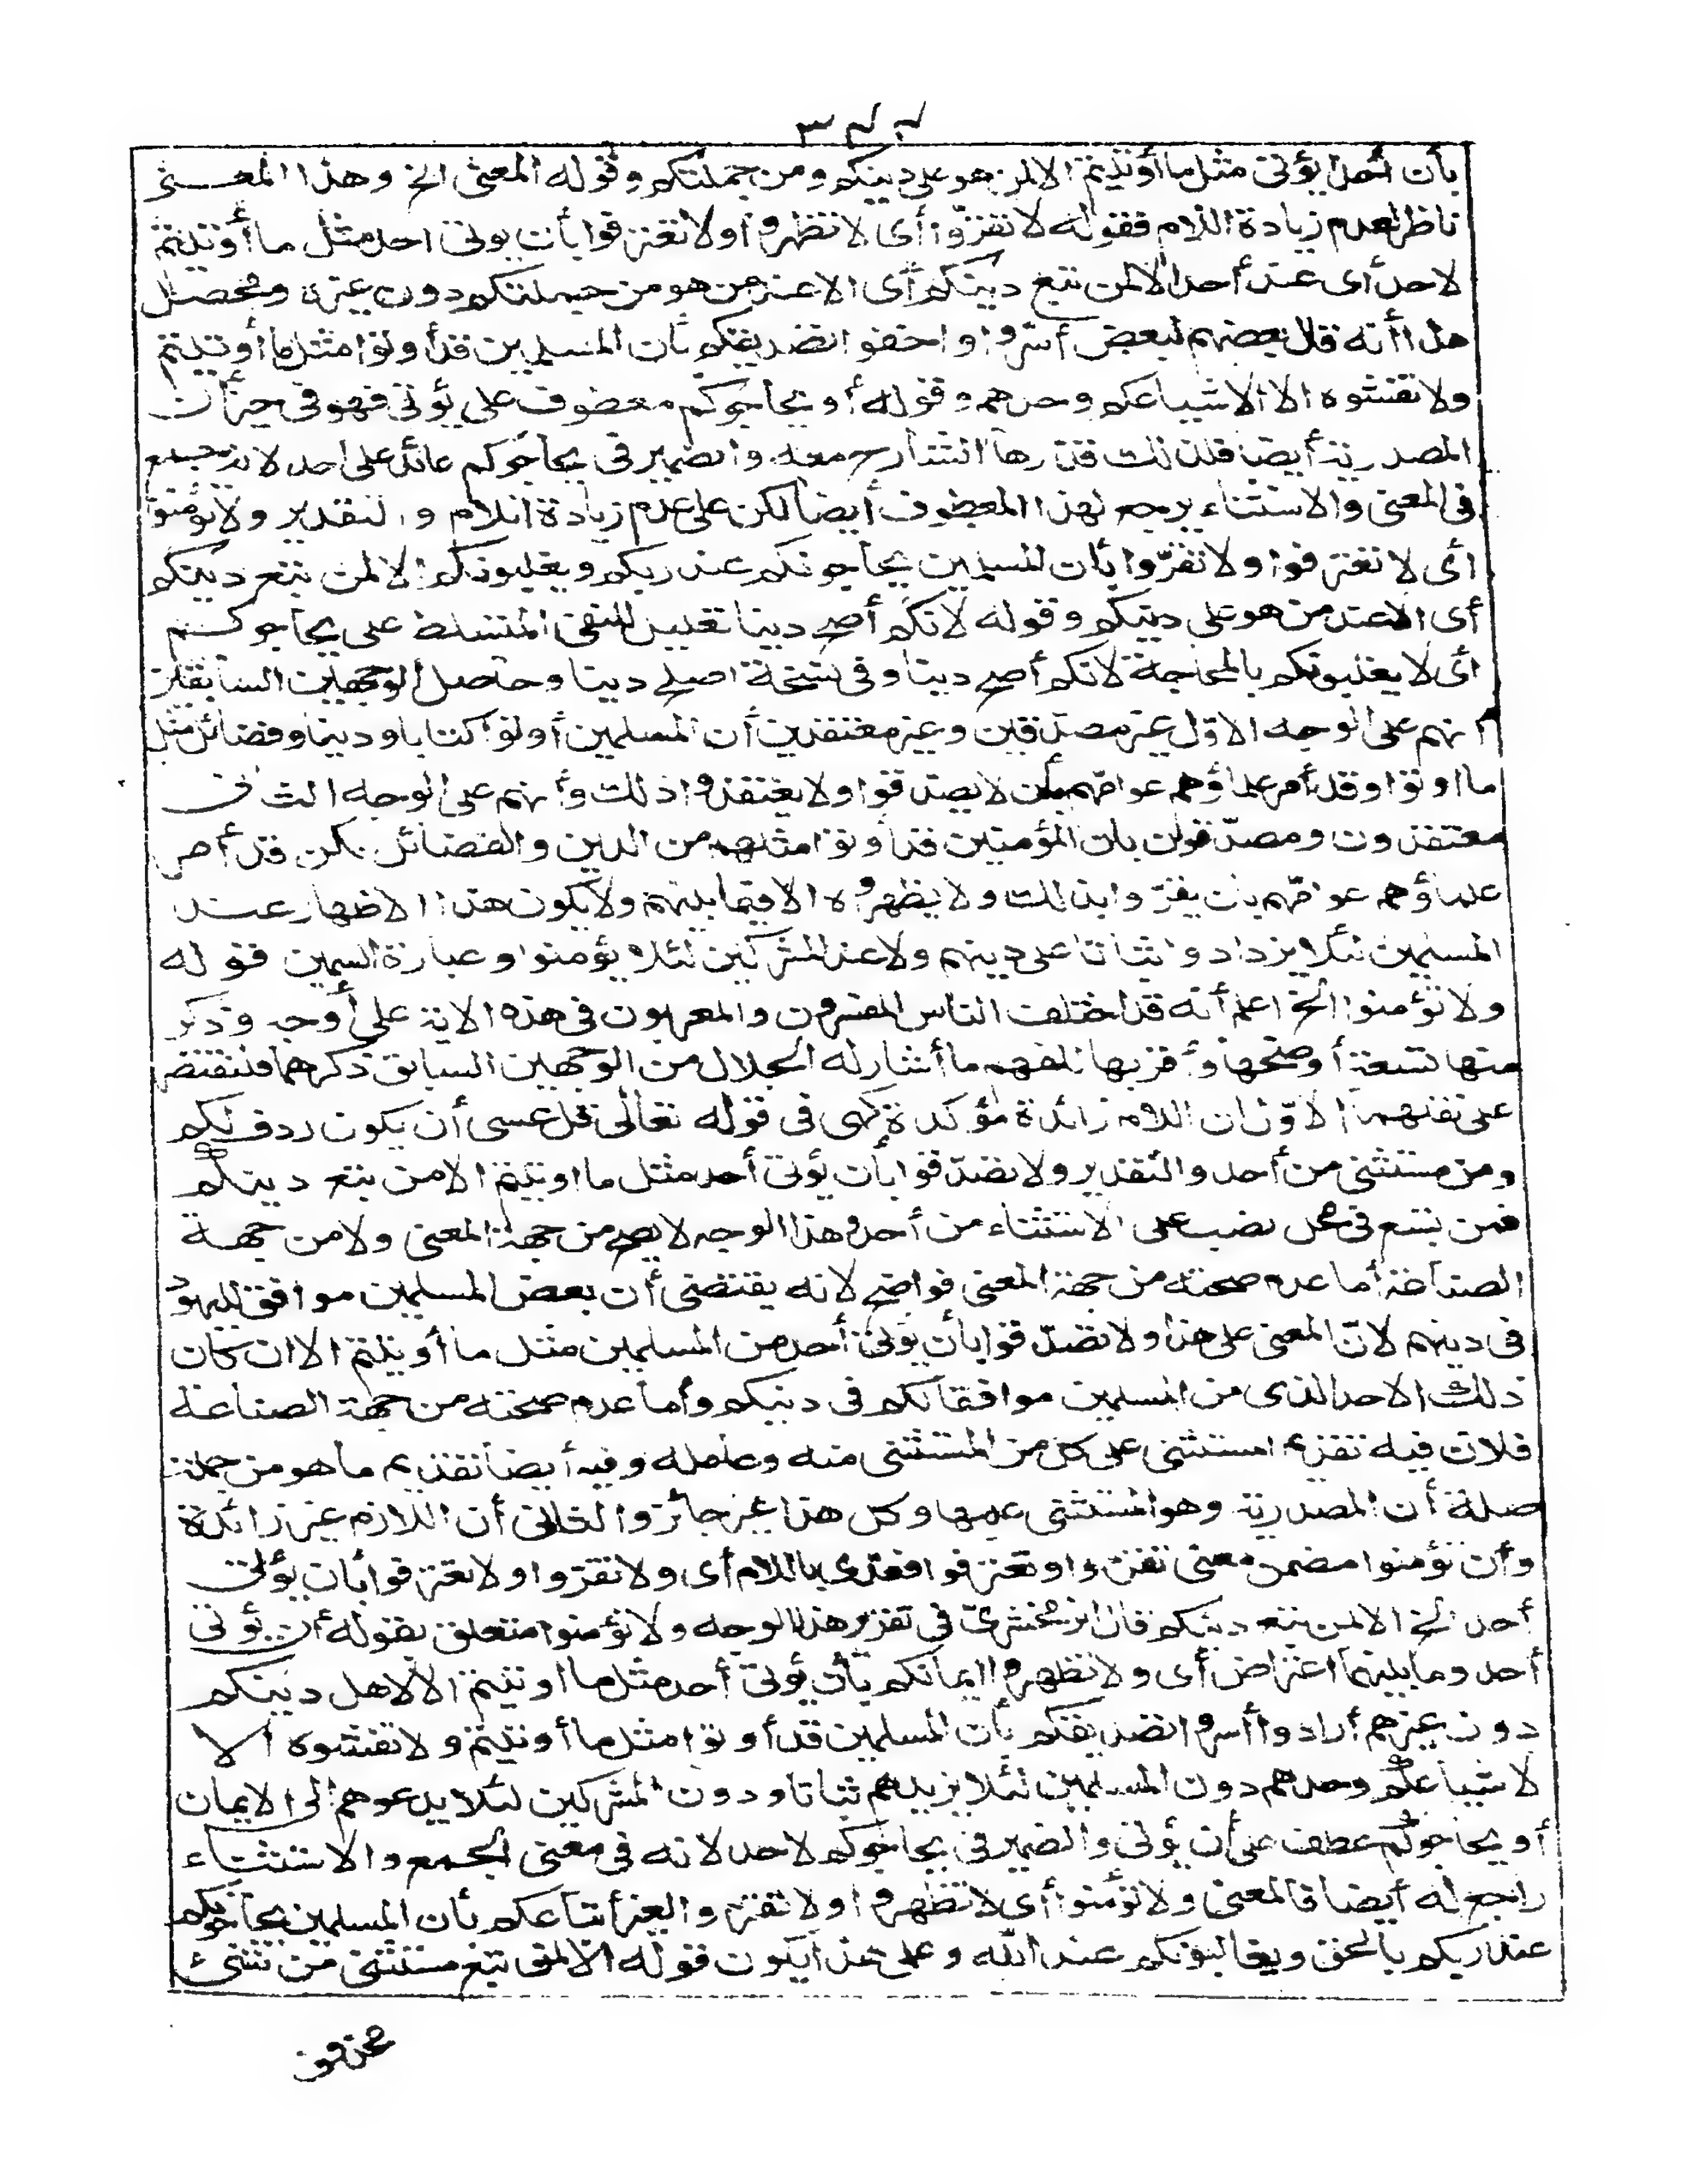 ٣٤٢
بأن أحدا يؤتى مثل ما أوتيتم الا لمن هو على دينكم ومن جملتكم وقوله المعنى الخ وهذا المعنى
ناظر لعدم زيادة اللام فقوله لا تقرّوا أى لا تظهروا ولا تعترفوا بأن يؤتى احد مثل ما أوتيتم
لاحد أى عند أحد الا لمن تبع دينكم أى الا عند من هو من جملتكم دون غيره ومحصل
هذا أنه قال بعضهم لبعض أسروا واخفوا تصديقكم بأن المسلمين قد أوتوا مثل ما أوتيتم
ولا تفشوه الا لاشياعكم وحدهم وقوله أو يحاجوكم معطوف على يؤتى فهو فى حيز أن
المصدرية أيضا فلذلك قدرها الشارح معه والضمير فى يحاجوكم عائد على أحد لانه جمع
فى المعنى والاستثناء يرجع لهذا المعطوف أيضا لكن على عدم زيادة اللام والتقدير ولا تؤمنوا
أى لا تعترفوا ولا تقرّوا بأن المسلمين يحاجونكم عند ربكم ويغلبونكم الا لمن تبع دينكم
أى الا عند من هو على دينكم وقوله لانكم أصح دينا تعليل للنفى المتسلط على يحاجوكم
أى لا يغلبونكم بالمحاججة لانكم أصح دينا وفى نسخة اصلح دينا وحاصل الوجهين السابقين
أنهم على الوجه الاوّل غير مصدّقين وغير معتقدين أن المسلمين أوتوا كتابا ودينا وفضائل مثل
ما اوتوا وقد أمر علماؤهم عوامّهم بأن لا يصدّقوا ولا يعتقدوا ذلك وأنهم على الوجه الثانى
معتقدون ومصدّقون بان المؤمنين قد أوتوا مثلهم من الدين والفضائل لكن قد أمر
علماؤهم عوامّهم بأن يقرّوا بذلك ولا يظهروه الا فيما بينهم ولا يكون هذا الاظهار عند
المسلمين لئلا يزدادوا ثباتا على دينهم ولا عند المشركين لئلا يؤمنوا وعبارة السمين قوله
ولا تؤمنوا الخ اعلم أنه قد اختلف الناس المفسرون والمعربون فى هذه الاية على أوجه وذكر
منها تسعة أوضحها وأقربها للفهم ما أشار له الجلال من الوجهين السابق ذكرهما فلنقتصر
على نقلهما الاوّل ان اللام زائدة مؤكدة كهى فى قوله تعالى قل عسى أن يكون ردف لكم
ومن مستثنى من أحد والتقدير ولا تصدّقوا بأن يؤتى أحد مثل ما اوتيتم الا من تبع دينكم
فمن تبع فى محل نصب على الاستثناء من أحد وهذا الوجه لا يصح من جهة المعنى ولا من جهة
الصناعة أما عدم صحته من جهة المعنى فواضح لانه يقتضى أن بعض المسلمين موافق لليهود
فى دينهم لانّ المعنى على هذا ولا تصدّقوا بأن يؤتى أحد من المسلمين مثل ما أوتيتم الا ان كان
ذلك الاحد الذى من المسلمين موافقا لكم فى دينكم وأما عدم صحته من جهة الصناعة
فلان فيه تقديم المستثنى على كل من المستثنى منه وعامله وفيه أيضا تقديم ما هو من جملة
صلة أن المصدرية وهو المستثنى عليها وكل هذا غير جائز والثانى أن اللازم غير زائدة
وأن تؤمنوا مضمن معنى تقروا وتعترفوا فعدى باللام أى ولا تقرّوا ولا تعترفوا بأن يؤتى
أحد الخ الا لمن تبع دينكم قال الزمخشرىّ فى تقرير هذا الوجه ولا تؤمنوا متعلق بقوله أن يؤتى
أحد وما بينهما اعتراض أى ولا تظهروا ايمانكم بأن يؤتى أحد مثل ما اوتيتم الا لاهل دينكم
دون غيرهم أرادوا أسروا تصديقكم بأن المسلمين قد أوتوا مثل ما أوتيتم ولا تفشوه الا
لاشياعكم وحدهم دون المسلمين لئلا يزيدهم ثباتا ودون المشركين لئلا يدعوهم الى الايمان
أو يحاجوكم عطف على أن يؤتى والضمير فى يحاجوكم لاحد لانه فى معنى الجمع والاستثناء
راجع له أيضا فالمعنى ولا تؤمنوا أى لا تظهروا ولا تقروا لغير أتباعكم بأن المسلمين يحاجونكم
عند ربكم بالحق ويغالبونكم عند الله وعلى هذا يكون قوله الا لمن تبع مستثنى من شئ
محذوف